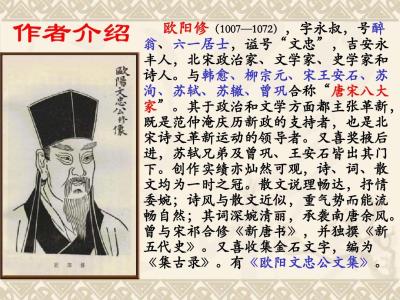 作者介绍
欧阳修（1007—1072），字永叔，号醉
翁、六一居士，谥号“文忠”，吉安永
丰人，北宋政治家、文学家、史学家和
诗人。与韩愈、柳宗元、宋王安石、苏
洵、苏轼、苏辙、曾巩合称“唐宋八大
家”。其于政治和文学方面都主张革新，
既是范仲淹庆历新政的支持者，也是北
宋诗文革新运动的领导者。又喜奖掖后
进，苏轼兄弟及曾巩、王安石皆出其门
下。创作实绩亦灿然可观，诗、词、散
文均为一时之冠。散文说理畅达，抒情
委婉；诗风与散文近似，重气势而能流
畅自然；其词深婉清丽，承袭南唐余风。
曾与宋祁合修《新唐书》，并独撰《新
五代史》。又喜收集金石文字，编为
《集古录》。有《欧阳文忠公文集》。
歐陽文忠公外像